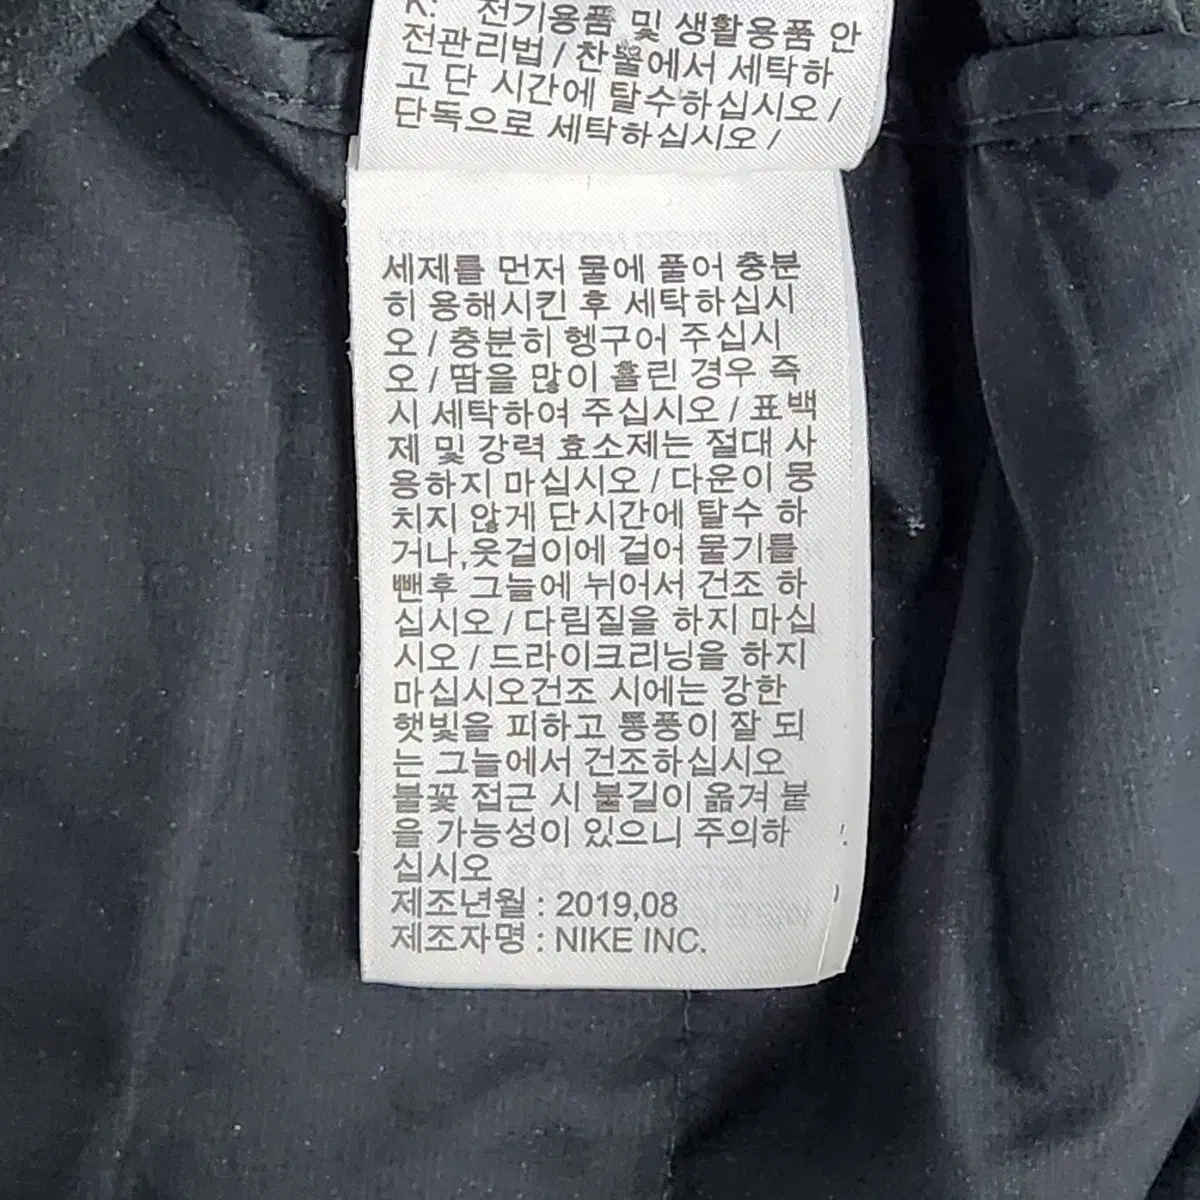 K: 전기용품 및 생활용품 안
전관리법 / 찬물에서 세탁하
고 단 시간에 탈수하십시오 /
단독으로 세탁하십시오 /
세제를 먼저 물에 풀어 충분
히 용해시킨 후 세탁하십시
오 / 충분히 헹구어 주십시
오 / 땀을 많이 흘린 경우 즉
시 세탁하여 주십시오 / 표백
제 및 강력 효소제는 절대 사
용하지 마십시오 / 다운이 뭉
치지 않게 단시간에 탈수 하
거나,옷걸이에 걸어 물기를
뺀후 그늘에 뉘어서 건조 하
십시오 / 다림질을 하지 마십
시오 / 드라이크리닝을 하지
마십시오건조 시에는 강한
햇빛을 피하고 통풍이 잘 되
는 그늘에서 건조하십시오
불꽃 접근 시 불길이 옮겨 붙
을 가능성이 있으니 주의하
십시오
제조년월 : 2019,08
제조자명 : NIKE INC.